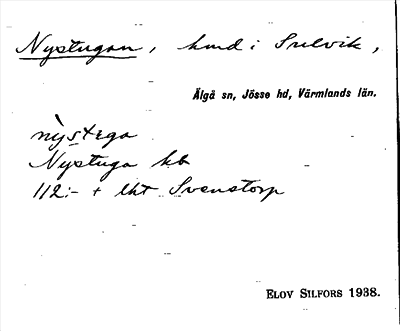 Nystugan, hmd i Sulvik,
Älgå sn, Jösse hd, Värmlands län.
nỳstᴈga
Nystuga kb
112:- + lht Svenstorp
ELOV SILFORS 1938.